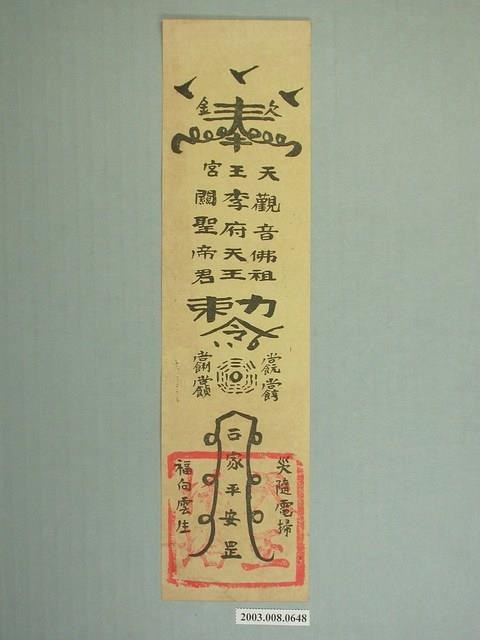 欽奉
天王宮
觀音佛祖
李府天王
關聖帝君
勅令
災隨電掃
合家平安罡
福向雲生
2003.008.0648